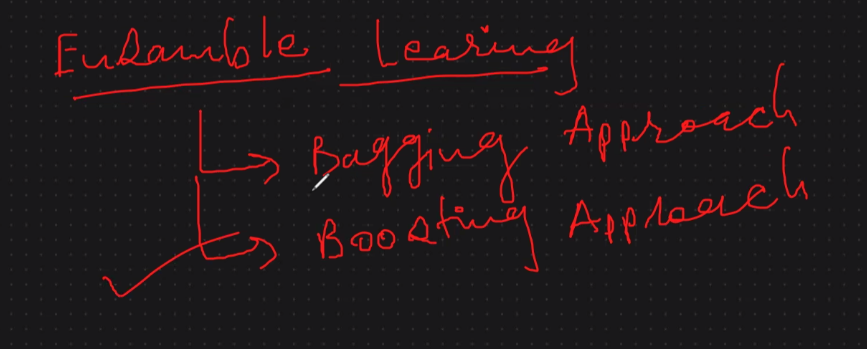 Ensamble Learing
Bagging Approach
Boosting Approach